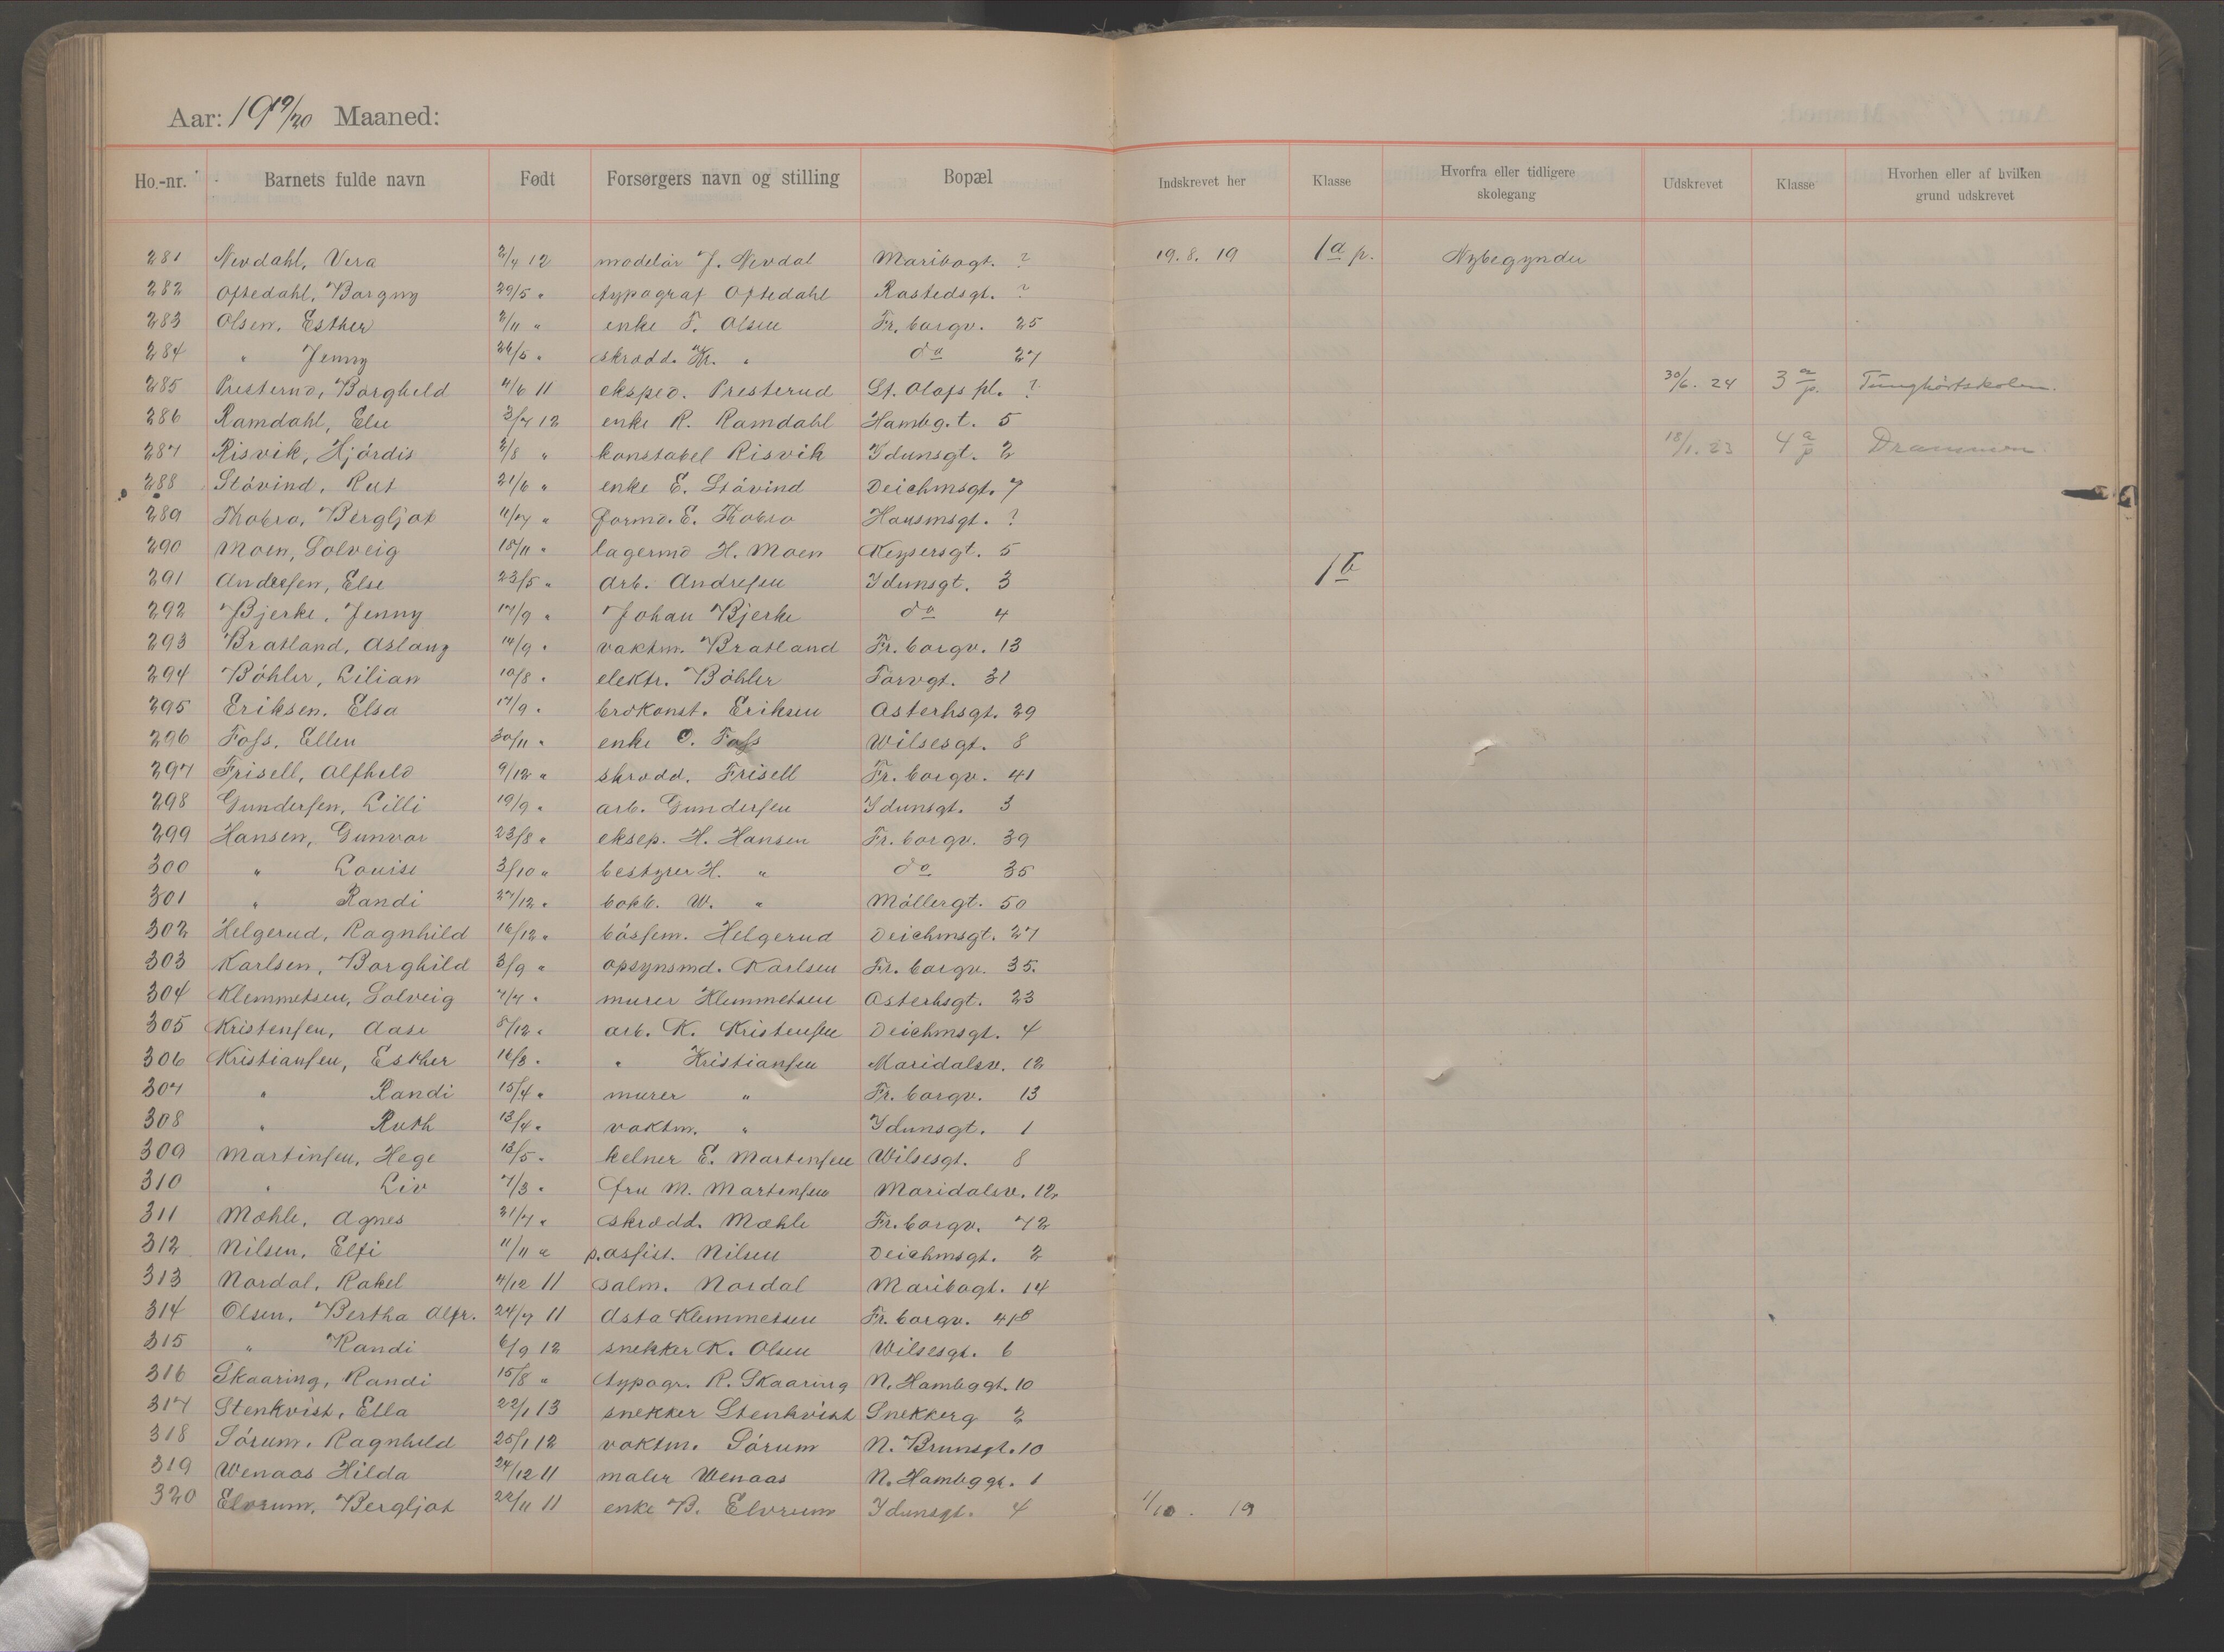 Aar: 19 19/20 Maaned:
Ho.-nr. Barnets fulde navn Født Forsørgers navn og stilling Bopæl Indskrevet her Klasse Hvorfra eller tidligere skolegang Udskrevet Klasse Hvorhen eller af hvilken grund udskrevet
281 Nevdahl, Vera 2/4 12 modelør J. Nevdal Maribogt. ? 19. 8. 19 1a p. Nybegynder
282 Oftedahl, Borgny 29/5 " typograf Oftedahl Rostedsgt. ?
283 Olsen, Esther 2/11 " enke F. Olsen Fr. borgv. 25
284 " Jenny 26/5 " skrædd. Kr. " do 27
285 Presterud, Borghild 4/6 11 eksped. Presterud St. Olafs pl. ? 30/6. 24 3 a p. Tunghørtskolen.
286 Ramdahl, Else 3/7 12 enke R. Ramdahl Hambg.t. 5
287 Risvik, Hjördis 2/8 " konstabel Risvik Idunsgt. 2 18/1. 23 4 a p Drammen.
288 Stövind, Rut 21/6 " enke E. Stövind Deichmsgt. 7
289 Thobro, Bergljot 11/7 " formd. E. Thobro Hausmsgt. ?
290 Moen, Solveig 18/11 " lagermd H. Moen Keysersgt. 5
291 Andresen, Else 23/5 " arb. Andresen Idunsgt. 3 1b
292 Bjerke, Jenny 17/9 " Johan Bjerke do 4
293 Bratland, Aslaug 14/9 " vaktm. Bratland Fr. borgv. 13
294 Böhler, Lilian 10/8 " elektr. Böhler Torvgt. 31
295 Eriksen, Elsa 17/9 " brdkonst. Eriksen Osterhsgt. 29
296 Foss, Ellen 30/11 " enke O. Foss Wilsesgt. 8
297 Frisell, Alfhild 9/12 " skrædd. Frisell Fr. borgv. 41
298 Gundersen, Lilli 19/9 " arb. Gundersen Idunsgt. 3
299 Hansen, Gunvor 23/8 " eksep. H. Hansen Fr. borgv. 39
300 " Louise 3/10 " bestyrer H. " do 35
301 " Randi 27/12 " bokb. W. " Möllergt. 50
302 Helgerud, Ragnhild 16/12 " bössem. Helgerud Deichmsgt. 27
303 Karlsen, Borghild 3/9 " opsynsmd. Karlsen Fr. borgv. 35.
304 Klemmetsen, Solveig 7/7 " murer Klemmetsen Osterhsgt. 23
305 Kristensen, Aase 8/12 " arb. K. Kristensen Deichmsgt. 4
306 Kristiansen, Esther 16/3 " " Kristiansen Maridalsv. 12
307 " Randi 15/4 " murer " Fr. borgv. 13
308 " Ruth 13/4 " vaktm. " Idunsgt. 1
309 Martinsen, Hege 13/5 " kelner E. Martinsen Wilsesgt. 8
310 " Liv 7/3 " fru M. Martinsen Maridalsv. 12
311 Mæhle, Agnes 31/7 " skrædd. Mæhle Fr. borgv. 42
312 Nilsen, Elfi 11/11 " p.assist. Nilsen Deichmsgt. 2
313 Nordal, Rakel 4/12 11 salm. Nordal Maribogt. 14
314 Olsen, Bertha Alfr. 24/7 11 Asta Klemmetsen Fr. borgv. 41B
315 " Randi 6/9 12 snekker K. Olsen Wilsesgt. 6
316 Skaaring, Randi 15/8 " typogr. R. Skaaring N. Hambggt. 10
317 Stenkvist, Ella 22/1 13 snekker Stenkvist Snekkerg 2
318 Sörum, Ragnhild 25/1 12 vaktm. Sörum N. Brunsgt. 10
319 Wenaas Hilda 24/12 11 maler Wenaas N. Hambggt. 1
320 Elvrum, Bergljot 22/11 11 enke B. Elvrum Idunsgt. 4 1/10. 19